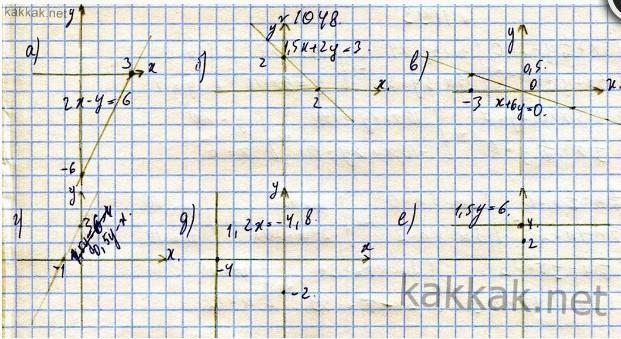 kakkak.net
№ 1048.
а)
y
3
x
2x-y=6
-6
б)
y
1,5x+2y=3.
2
2
x.
в)
y
0,5.
0
-3
x+6y=0.
x.
г)
y
x.
-1
д)
y
1,2x=-4,8.
x
-4
-2.
е)
1,5y=6.
4.
2
kakkak.net